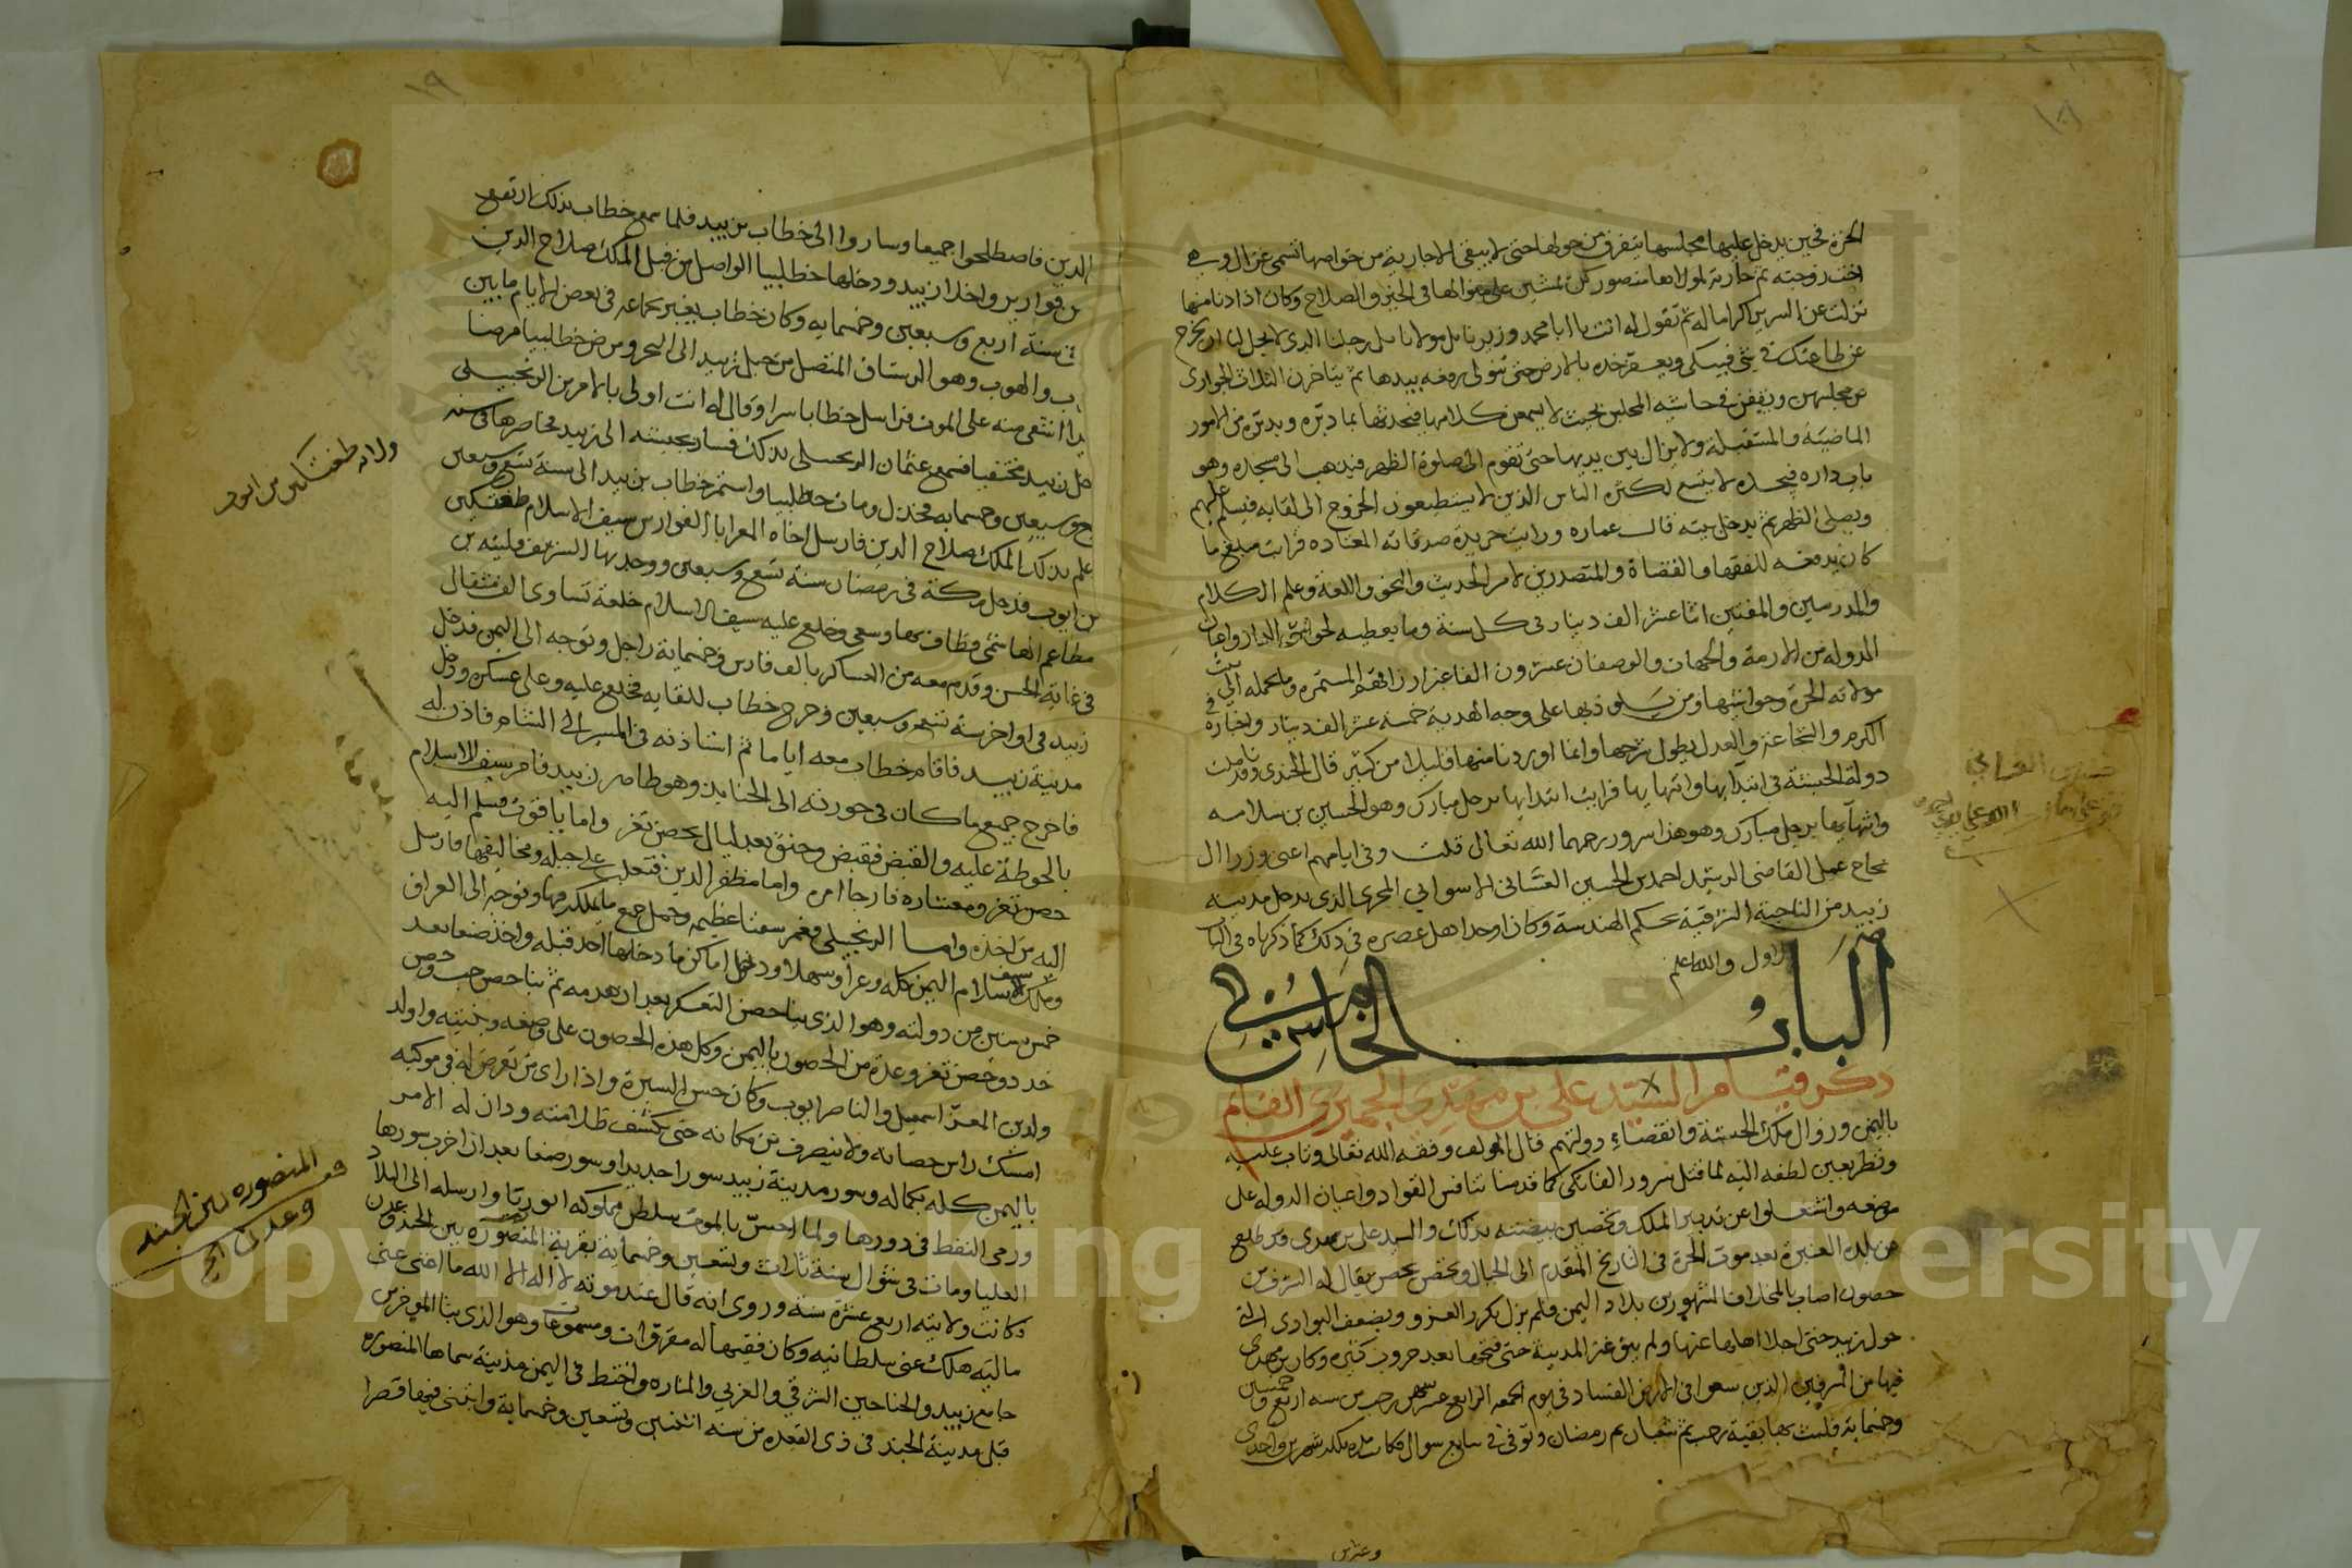 ١٨
الحرة فحين يدخل عليها مجلسها يتفرق من حولها حتى لا يبقى الا جارية من خواصها تسمى غزال وهي
اخت زوجته ثم جارية لمولاها منصور كن يمشين على منوالها في الخير والصلاح وكان اذا دنا منها
نزلت عن السرير اكراما له ثم تقول له انت يا ابا محمد وزيرنا بل مولانا بل رجلنا الذي لا يحل لنا ان نخرج
عن طاعتك في شي فيبكي ويعفر خده بالارض حتى تتولى رفعه بيدها ثم يتاخرن الثلاث الجواري
عن مجلسهن ويقفن في حاشية المجلس بحيث لا يسمعن كلامها فيحدثها بما دبره ويدبره من الامور
الماضية والمستقبلة ولا يزال بين يديها حتى تقوم الى صلوة الظهر فيذهب الى مسجده وهو
باب داره فيجده لا يتسع لكثرة الناس الذين لا يستطيعون الخروج الى لقايه فيسلم عليهم
ويصلي الظهر ثم يدخل بيته قال عماره ورايت جريدة صدقاته المعتاده فرايت مبلغ ما
كان يدفعه للفقها والقضاة والمتصدرين لامر الحديث والنحو واللغة وعلم الكلام
والمدرسين والمفتين اثنا عشر الف دينار في كل سنة وما يعطيه لحواشي الدار واعيان
الدولة من الازمة والجهات والوصفان عشرون الفا غير ارزاقهم المستمره وما يحمله الى بيت
مولاته الحرة وحواشيها ومن يسلوذ بها على وجه الهدية خمسة عشر الف دينار واخباره في
الكرم والشجاعة والعدل يطول شرحها وانما اوردنا منها قليلا من كثير قال الجندي وقد تاملت
دولة الحبشة في ابتدايها وانتهايها فرايت ابتدايها برجل مبارك وهو الحسين بن سلامه
وانتهايها برجل مبارك وهو هذا سرور رحمهما الله تعالى قلت وفي ايامهم اعني وزرا ال
نجاح عمل القاضي الرشيد احمد بن الحسين الغساني الاسواني المجرى الذي يدخل مدينة
زبيد من الناحية الشرقية بحكم الهندسة وكان اوحد اهل عصره في ذلك كما ذكرناه في الباب
الاول والله اعلم
الباب الخامس في
ذكر قيام السيد علي بن مهدي الحميري القايم
باليمن وزوال ملك الحبشة وانقضاء دولتهم قال المولف وفقه الله تعالى وتاب عليه
ونظر بعين لطفه اليه لما قتل سرور الفاتكي كما قدمنا تنافس القواد واعيان الدولة على
موضعه واشتغلوا عن تدبير الملك وتحصين بيضته بذلك والسيد علي بن مهدي قد طلع
من بلده العنبرة بعد موت الحرة في التاريخ المتقدم الى الجبال وتحصن بحصن يقال له الشرف من
حصون اصاب بالمخلاف المشهور من بلاد اليمن فلم يزل يكرر الغزو ويضعف البوادي التي
حول زبيد حتى اجلا اهلها عنها ولم يبق غير المدينة حتى فتحها بعد حروب كثيرة وكان بن مهدي
فيها من المترفين الذين سعوا في الارض الفساد في يوم الجمعه الرابع عشر من رجب من سنة اربع وخمسين
وخمسماية فلبث بها بقية رجب ثم شعبان ثم رمضان وتوفي في سابع شوال فكانت مدة ملكه شهرين واحدى
وعشرين
١٩
الدين فاصطلحوا جميعا وساروا الى خطاب بن زبيد فلما سمع خطاب بذلك ارتفع
من قوارير واخذا زبيد ودخلها خطلبا الواصل من قبل الملك صلاح الدين
في سنة اربع وسبعين وخمسمايه وكان خطاب يغير بجماعه في بعض الايام ما بين
والهوب وهو الرستاق المتصل من جبل زبيد الى البحر ومرض خطلبا مرضا
اشفى منه على الموت فراسل خطابا سرا وقال له انت اولى بالامر من الزنجيلي
زبيد مختفيا فسمع عثمان الزنجيلي بذلك فسار بجيشه الى زبيد فحاصرها في سنة
وسبعين وخمسمايه فخذل ومات خطلبا واستمر خطاب بن زبيد الى سنة تسع وسبعين
علم بذلك الملك صلاح الدين فارسل اخاه المعز ابا الفوارس سيف الاسلام طغتكين
بن ايوب فدخل مكة في رمضان سنة تسع وسبعين ووجد بها الشريف فليته بن
مطاعم الهاشمي فطاف بها وسعى وخلع عليه سيف الاسلام خلعة تساوى الف مثقال
في غاية الحسن وقدم معه من العساكر بالف فارس وخمسماية راجل وتوجه الى اليمن فدخل
زبيد في اواخر سنة تسع وسبعين وخرج خطاب للقايه فخلع عليه وعلى عسكره ودخل
مدينة زبيد فاقام خطاب معه اياما ثم استاذنه في المسير الى الشام فاذن له
فاخرج جميع ما كان في حوزته الى الجنابذ وهو ظاهر زبيد فامر سيف الاسلام
بالحوطة عليه والقبض فقبض وخنق بعد ليال بحصن تعز واما ياقوت فسلم اليه
حصن تعز ومعشاره فارجا امره واما مظفر الدين فتغلب على جبله ومخاليفها فارسل
اليه من اخذه واما الزنجيلي فغنم سفنا عظيمه وحمل جميع ما يملكه فيها وتوجه الى العراق
وملك سيف الاسلام اليمن كله وعرا وسهلا ودخل اماكن ما دخلها احد قبله واخذ صنعا بعد
خمس سنين من دولته وهو الذي بنا حصن التعكر بعد ان هدمه ثم بنا حصن حب وحصن
خدد وحصن تعز وعدة من الحصون باليمن وكل هذه الحصون على وضعه وبنيته واولد
ولدين المعز اسمعيل والناصر ايوب وكان حسن السيرة واذا راى من تعرض له في موكبه
امسك راس حصانه ولا ينصرف من مكانه حتى يكشف ظلامته ودان له الامر
باليمن كله بكماله وسور مدينة زبيد سورا جديدا وسور صنعا بعد ان اخرب سورها
ورمى النفط في دورها ولما احس بالموت سلطن مملوكه ابو ريا وارسله الى البلاد
العليا ومات في شوال سنة ثلاث وتسعين وخمسماية بقرية المنصوره بين الجند وعدن
وكانت ولايته اربع عشرة سنة وروى انه قال عند موته لا اله الا الله ما اغنى عني
ماليه هلك عني سلطانيه وكان فقيها له مقروات ومسموعات وهو الذي بنا الموخر من
جامع زبيد والجناحين الشرقي والغربي والمناره واختط في اليمن مدينة سماها المنصوره
قبلي مدينة الجند في ذي القعده من سنة اثنتين وتسعين وخمسماية وابتنى فيها قصرا
ولاية طغتكين بن ايوب
المنصوره بين الجند
وعدن
Copyright © King Saud University